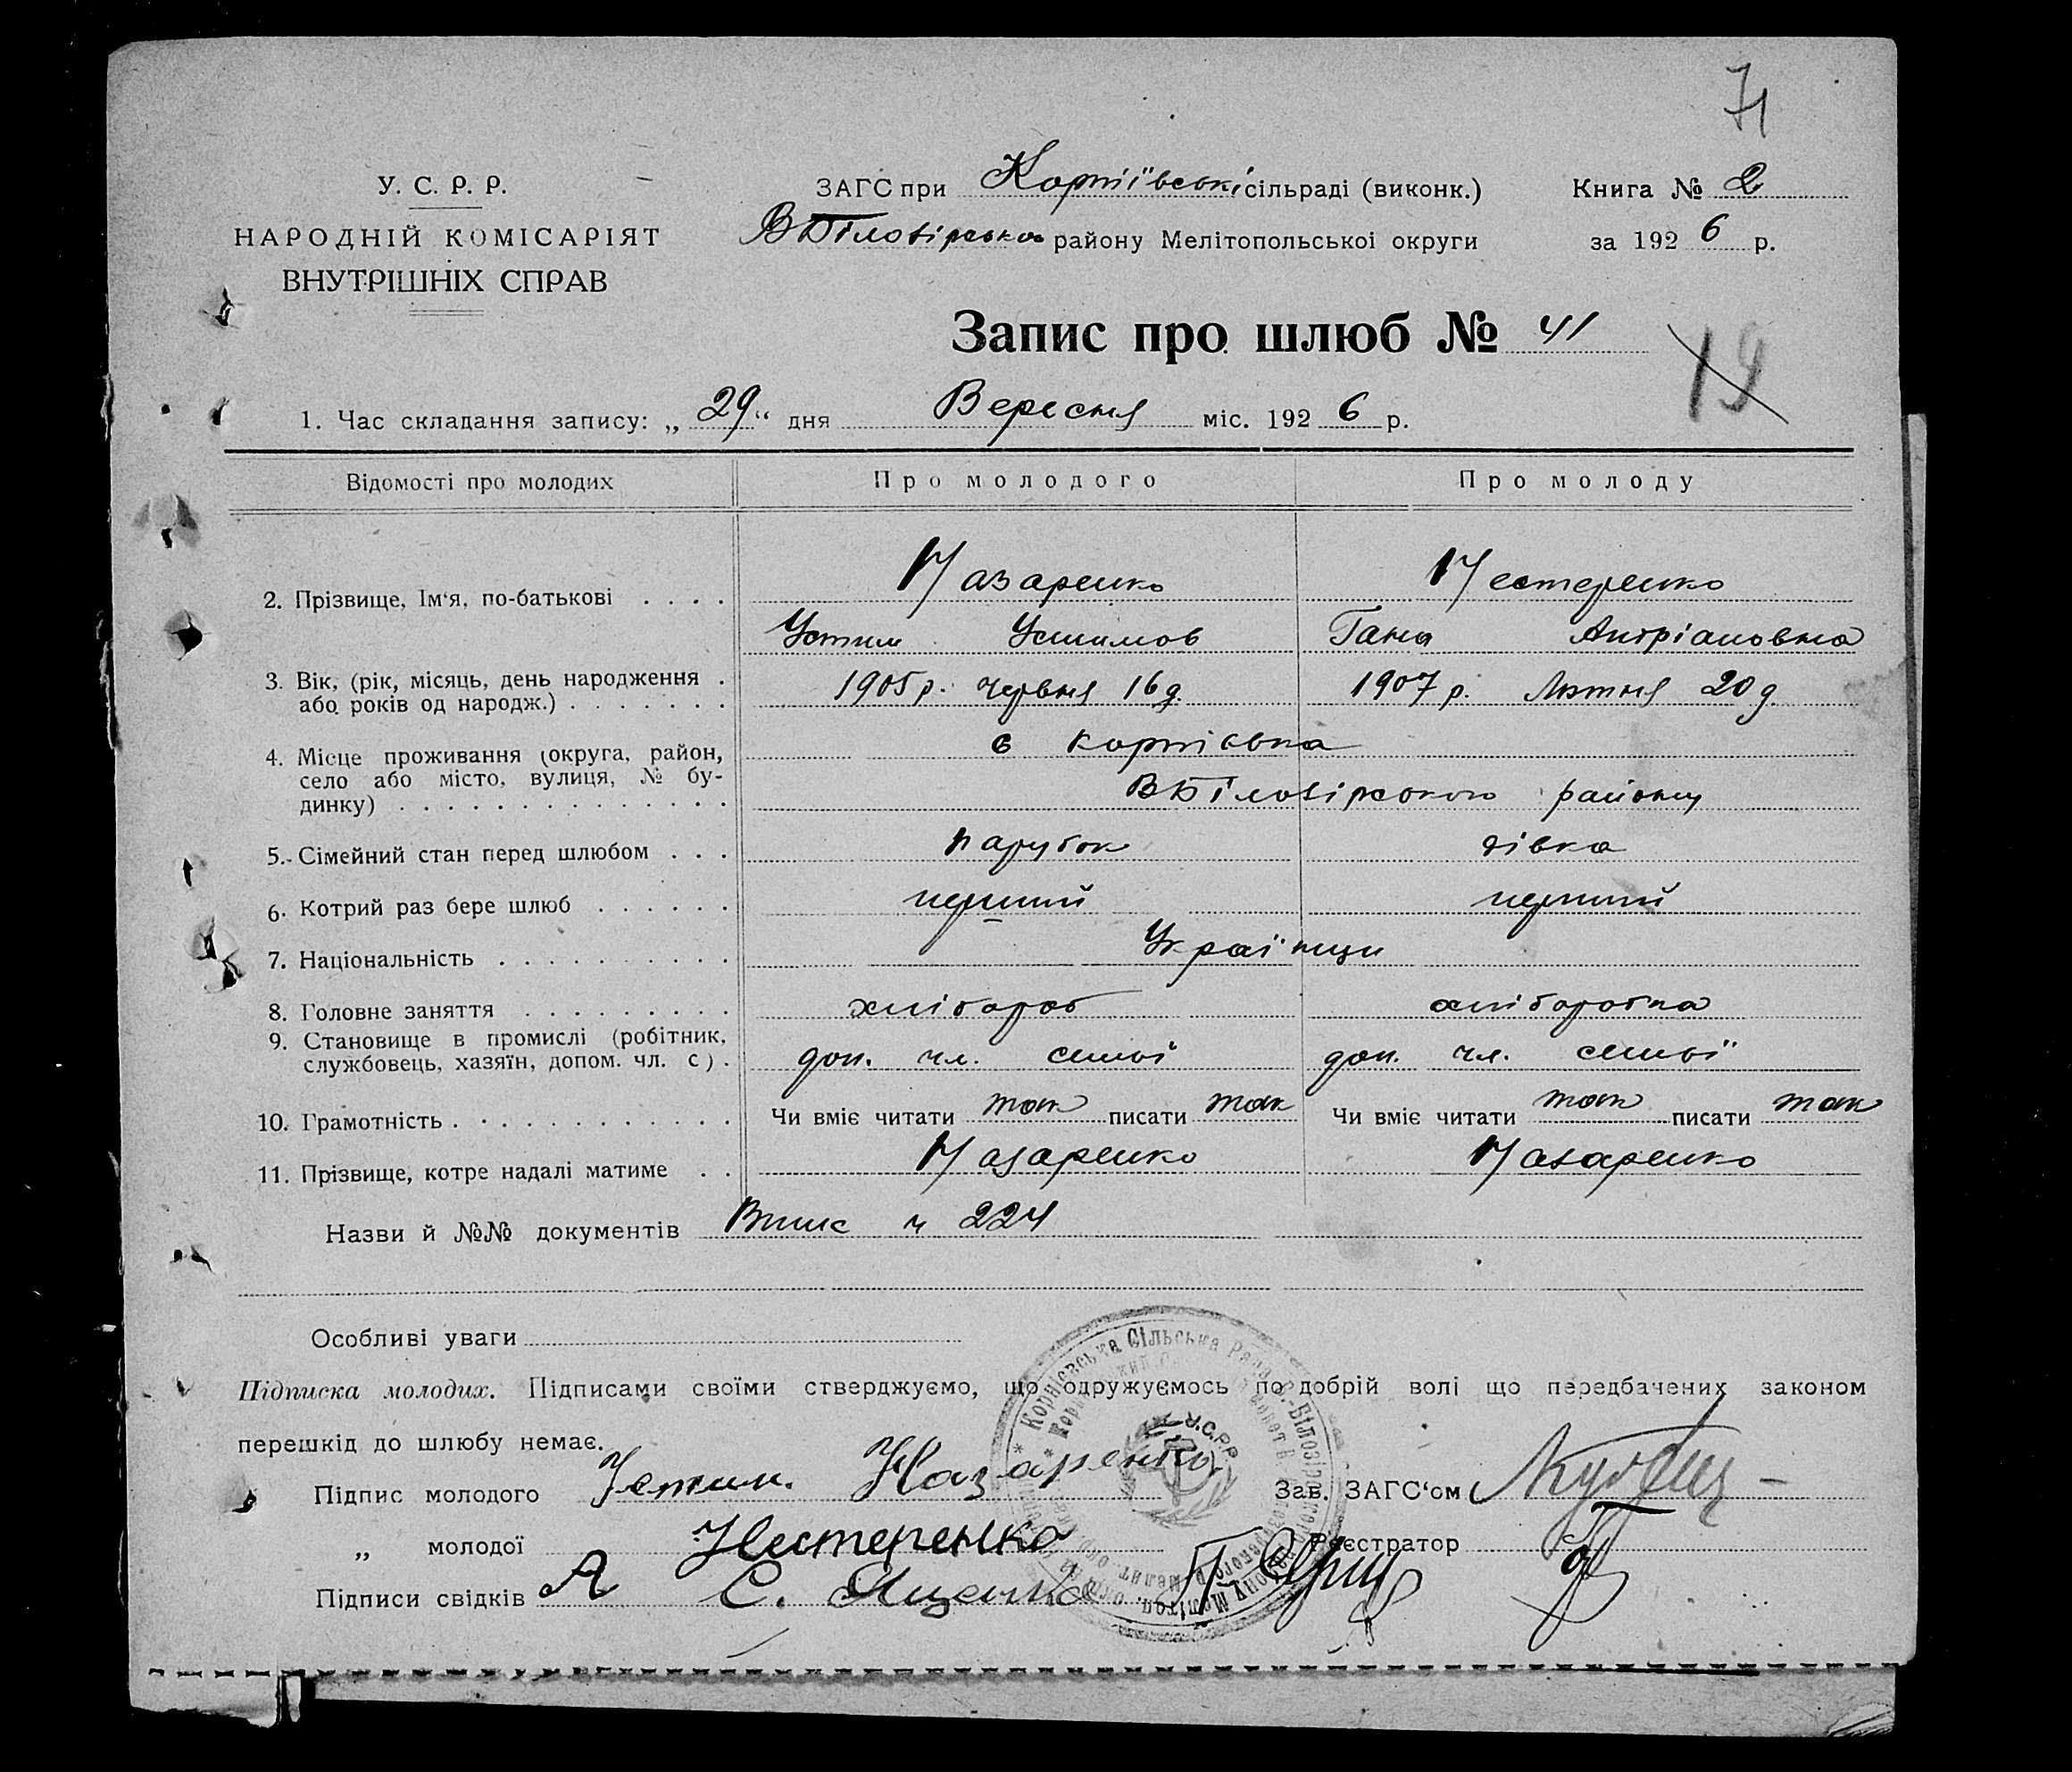 71
У. С. Р. Р.
НАРОДНІЙ КОМІСАРІЯТ
ВНУТРІШНІХ СПРАВ
ЗАГС при Корніївські сільраді (виконк.)
ВБілозірсько району Мелітопольської округи
Книга № 2
за 1926 р.
Запис про шлюб № 41
19
1. Час складання запису: „29“ дня Вересня міс. 1926 р.
Відомості про молодих Про молодого Про молоду
2. Прізвище, Ім'я, по-батькові . . . . Назаренко Нестеренко
Устим Устимов Гана Андріановна
3. Вік, (рік, місяць, день народження . 1905 р. червня 16 д. 1907 р. Лютня 20 д.
або років од народж.) . . . . . . .
4. Місце проживання (округа, район, с Корніівка
село або місто, вулиця, № бу- ВБілозірського району
динку) . . . . . . . . . . . . . .
5. Сімейний стан перед шлюбом . . . парубок дівка
6. Котрий раз бере шлюб . . . . . . перший перший
7. Національність . . . . . . . . . . Українци
8. Головне заняття . . . . . . . . . хлібороб хлібороб­ка
9. Становище в промислі (робітник,
службовець, хазяїн, допом. чл. с) . доп. чл. семьї доп. чл. семьї
10. Грамотність . . . . . . . . . . . . Чи вміє читати так писати так Чи вміє читати так писати так
11. Прізвище, котре надалі матиме . . Назаренко Назаренко
Назви й №№ документів Впис ч 224
Особливі уваги
Підписка молодих. Підписами своїми стверджуємо, що одружуємось по добрій волі що передбачених законом
перешкід до шлюбу немає.
Підпис молодого Устим. Назаренко Зав. ЗАГС‘ом
„ молодої Нестеренко Реєстратор
Підписи свідків С. Яценко
Корніевська Сільська Рада В.-Білозірського району Мелітоп.
У.С.Р.Р.